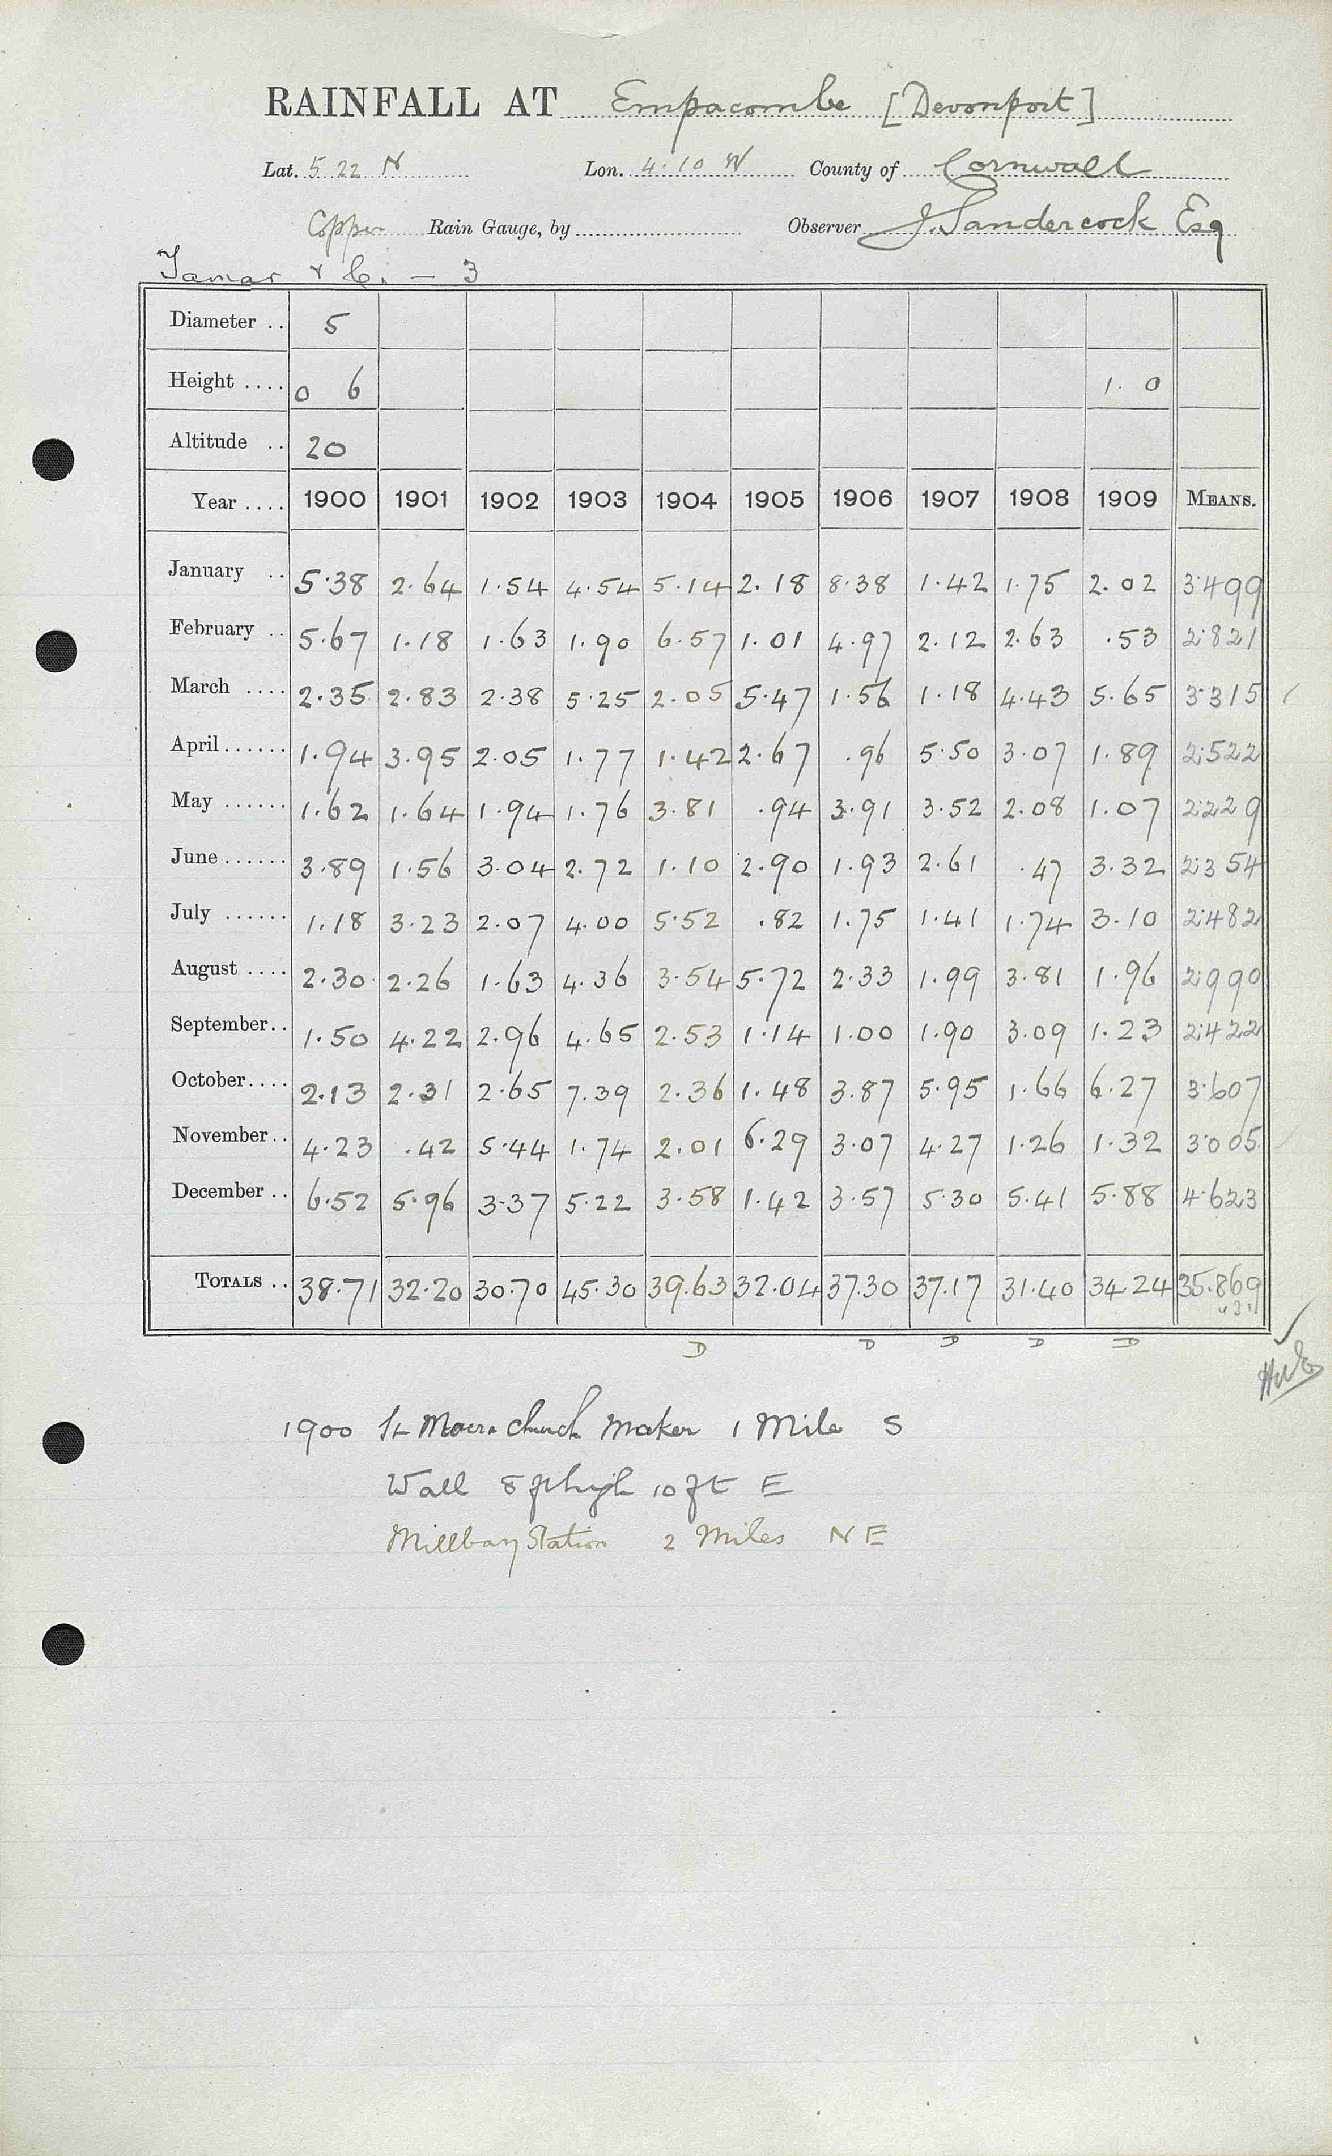 RAINFALL AT Empacombe [Devonport]
Lat. 5 22 N Lon. 4.10 W County of Cornwall
Copper Rain Gauge, by Observer J. Sandercock Esq
Tamar & C. - 3
Diameter .. 5
Height .... 0 6 1. 0
Altitude .. 20
Year .... 1900 1901 1902 1903 1904 1905 1906 1907 1908 1909 MEANS.
January .. 5.38 2.64 1.54 4.54 5.14 2.18 8.38 1.42 1.75 2.02 3.499
February .. 5.67 1.18 1.63 1.90 6.57 1.01 4.97 2.12 2.63 .53 2.821
March .... 2.35 2.83 2.38 5.25 2.05 5.47 1.56 1.18 4.43 5.65 3.315
April...... 1.94 3.95 2.05 1.77 1.42 2.67 .96 5.50 3.07 1.89 2.522
May ...... 1.62 1.64 1.94 1.76 3.81 .94 3.91 3.52 2.08 1.07 2.229
June...... 3.89 1.56 3.04 2.72 1.10 2.90 1.93 2.61 .47 3.32 2.354
July ...... 1.18 3.23 2.07 4.00 5.52 .82 1.75 1.41 1.74 3.10 2.482
August .... 2.30 2.26 1.63 4.36 3.54 5.72 2.33 1.99 3.81 1.96 2.990
September.. 1.50 4.22 2.96 4.65 2.53 1.14 1.00 1.90 3.09 1.23 2.422
October.... 2.13 2.31 2.65 7.39 2.36 1.48 3.87 5.95 1.66 6.27 3.607
November.. 4.23 .42 5.44 1.74 2.01 6.29 3.07 4.27 1.26 1.32 3.005
December .. 6.52 5.96 3.37 5.22 3.58 1.42 3.57 5.30 5.41 5.88 4.623
TOTALS .. 38.71 32.20 30.70 45.30 39.63 32.04 37.30 37.17 31.40 34.24 35.869
D D D D D
1900 Church Maker 1 Mile S
Wall 8 ft high 10 ft E
Millbay Station 2 Miles NE